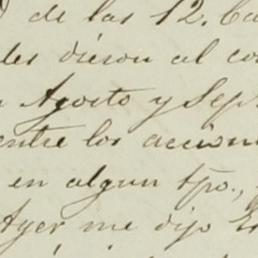 de las 12. Ca
des dieron al co
Agosto y Sep
entre los accion
en algun tpo.,
Ayer me dijo